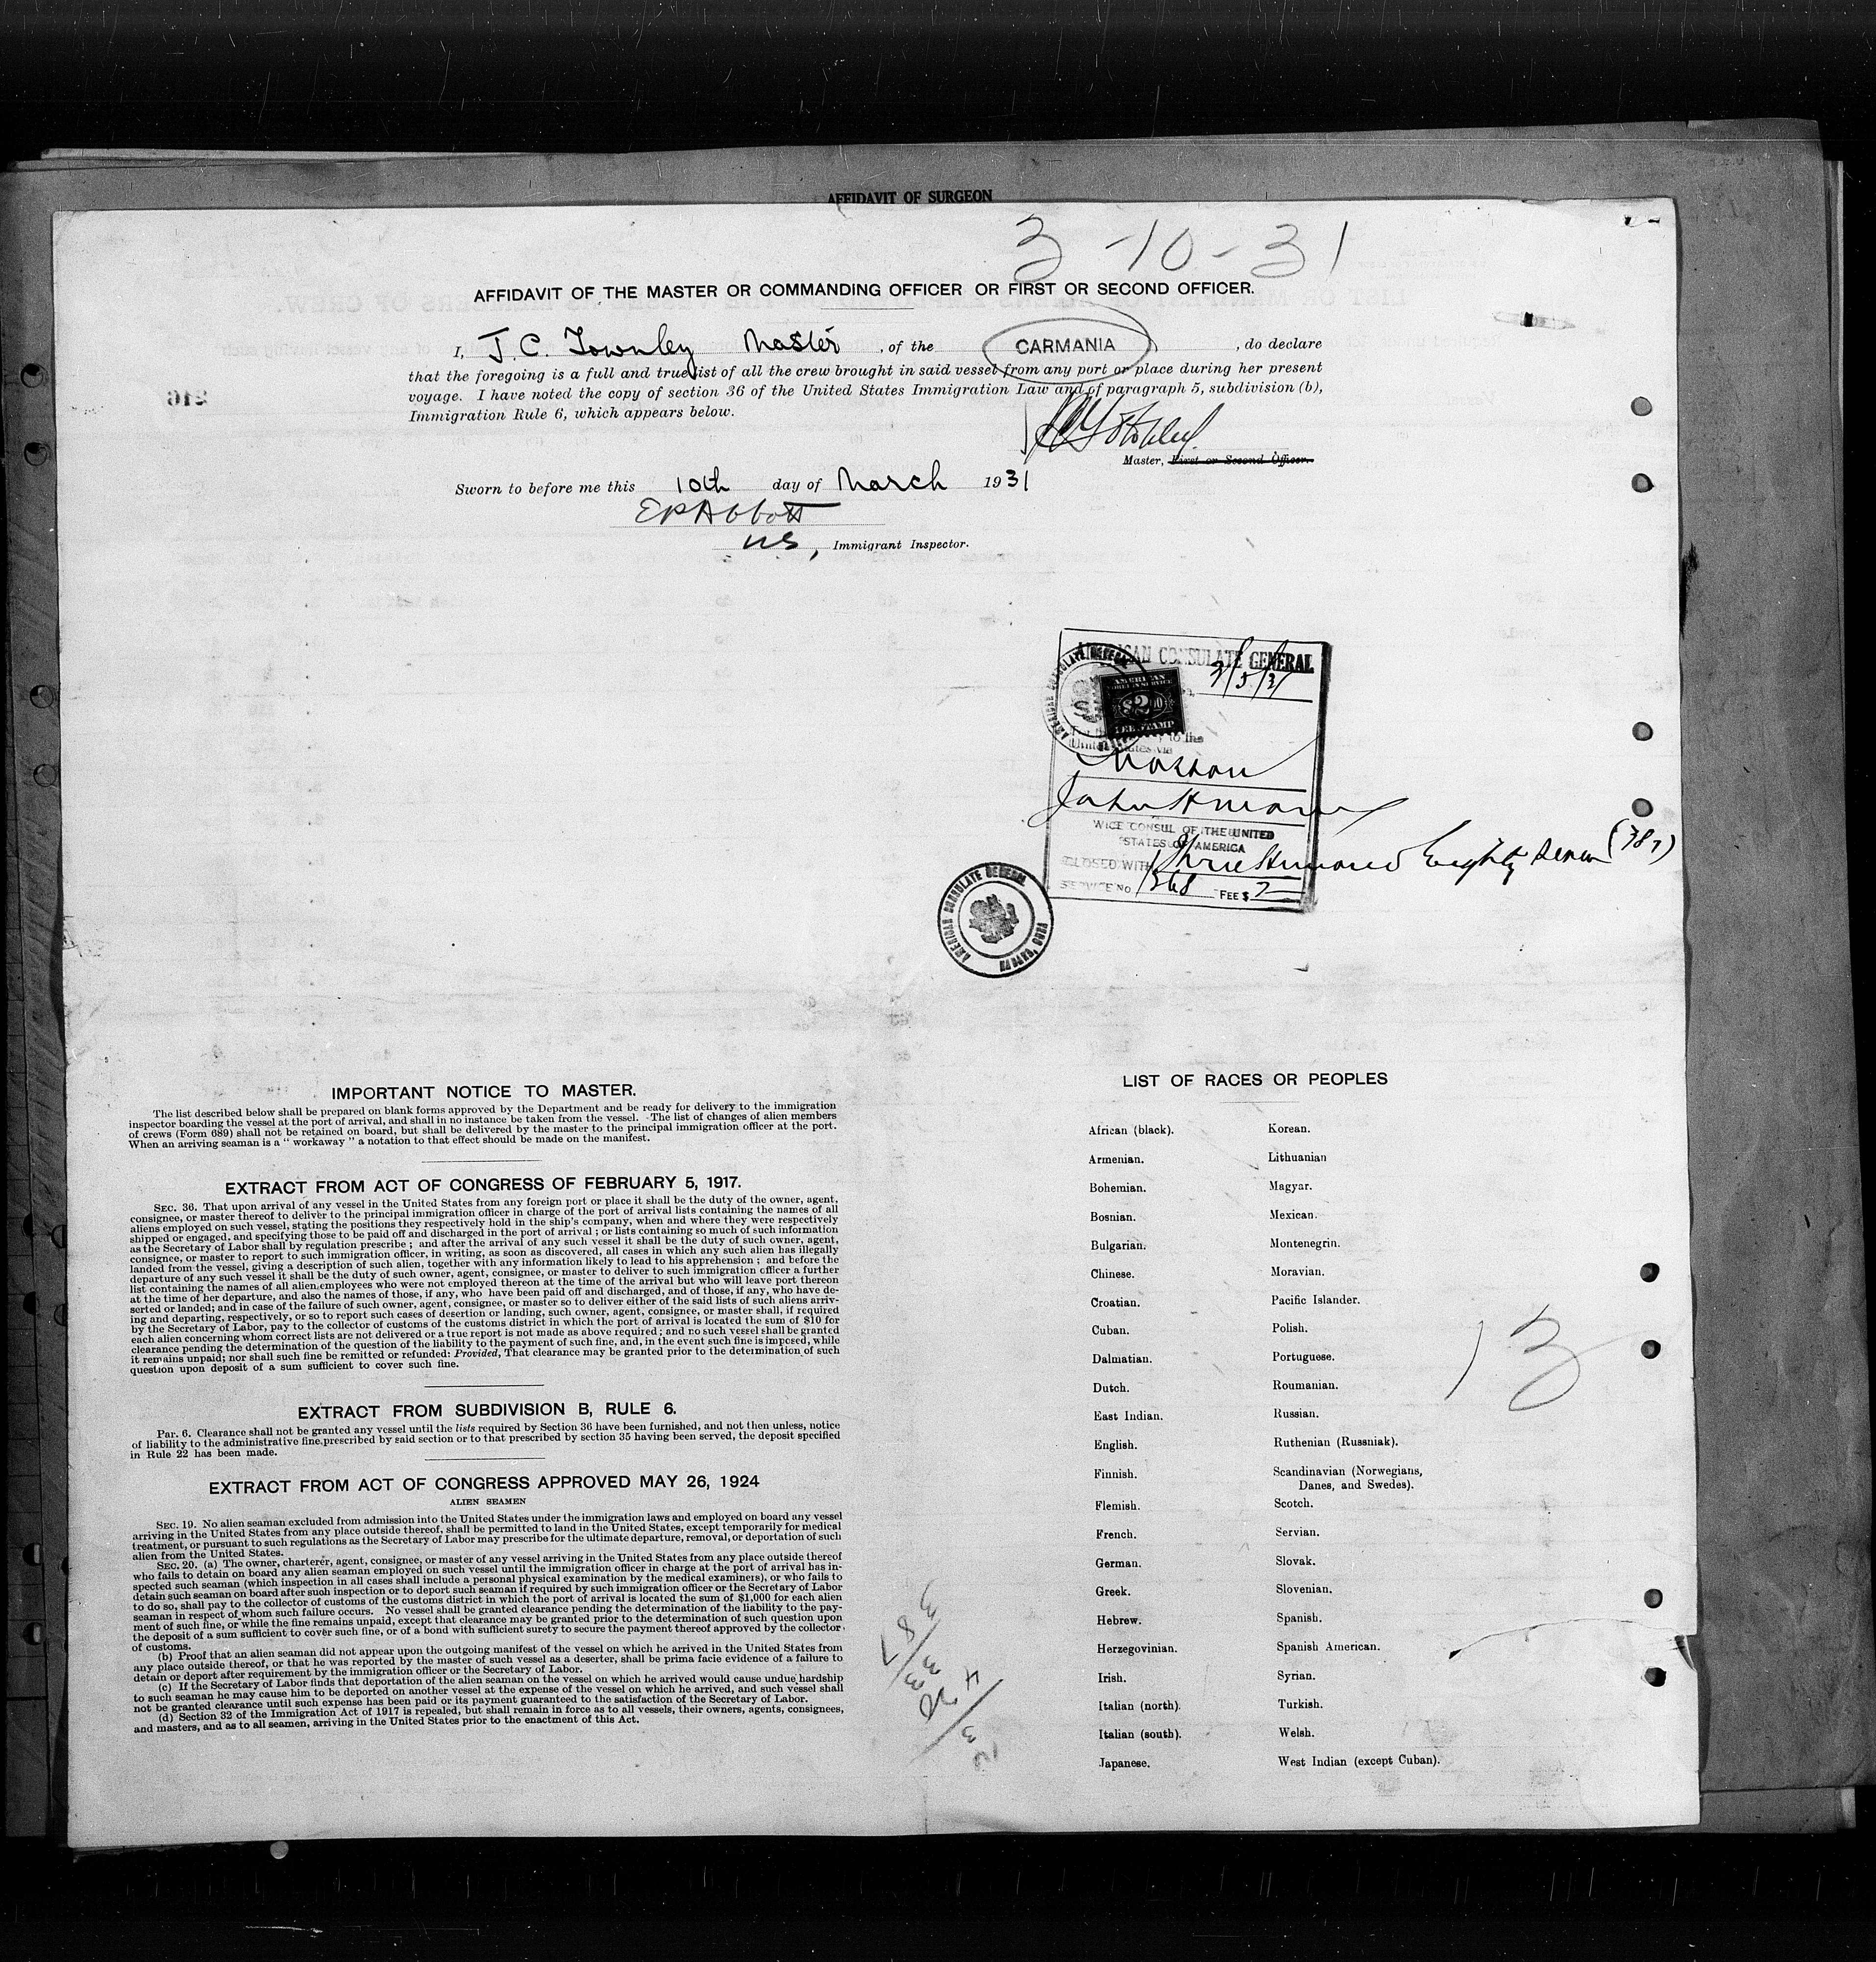 AFFIDAVIT OF SURGEON
3-10-31
AFFIDAVIT OF THE MASTER OR COMMANDING OFFICER OR FIRST OR SECOND OFFICER.
I, J. C. Townley Master, of the CARMANIA, do declare
that the foregoing is a full and true list of all the crew brought in said vessel from any port or place during her present
voyage. I have noted the copy of section 36 of the United States Immigration Law and of paragraph 5, subdivision (b),
Immigration Rule 6, which appears below.
Master, First or Second Officer.
Sworn to before me this 10th day of March 1931
E P Abbott
U S, Immigrant Inspector.
216
AMERICAN CONSULATE GENERAL
3/5/31
AMERICAN CONSULATE GENERAL
AMERICAN
FOREIGN SERVICE
$2.00
FEE STAMP
to the
United States via
Nassau
VICE CONSUL OF THE UNITED
STATES OF AMERICA
CLOSED WITH Three Hundred Eighty Seven (387)
SERVICE No. 1368 FEE $ 2
AMERICAN CONSULATE GENERAL
HABANA, CUBA
IMPORTANT NOTICE TO MASTER.
The list described below shall be prepared on blank forms approved by the Department and be ready for delivery to the immigration
inspector boarding the vessel at the port of arrival, and shall in no instance be taken from the vessel. The list of changes of alien members
of crews (Form 689) shall not be retained on board, but shall be delivered by the master to the principal immigration officer at the port.
When an arriving seaman is a " workaway " a notation to that effect should be made on the manifest.
EXTRACT FROM ACT OF CONGRESS OF FEBRUARY 5, 1917.
SEC. 36. That upon arrival of any vessel in the United States from any foreign port or place it shall be the duty of the owner, agent,
consignee, or master thereof to deliver to the principal immigration officer in charge of the port of arrival lists containing the names of all
aliens employed on such vessel, stating the positions they respectively hold in the ship's company, when and where they were respectively
shipped or engaged, and specifying those to be paid off and discharged in the port of arrival ; or lists containing so much of such information
as the Secretary of Labor shall by regulation prescribe ; and after the arrival of any such vessel it shall be the duty of such owner, agent,
consignee, or master to report to such immigration officer, in writing, as soon as discovered, all cases in which any such alien has illegally
landed from the vessel, giving a description of such alien, together with any information likely to lead to his apprehension ; and before the
departure of any such vessel it shall be the duty of such owner, agent, consignee, or master to deliver to such immigration officer a further
list containing the names of all alien employees who were not employed thereon at the time of the arrival but who will leave port thereon
at the time of her departure, and also the names of those, if any, who have been paid off and discharged, and of those, if any, who have de-
serted or landed; and in case of the failure of such owner, agent, consignee, or master so to deliver either of the said lists of such aliens arriv-
ing and departing, respectively, or so to report such cases of desertion or landing, such owner, agent, consignee, or master shall, if required
by the Secretary of Labor, pay to the collector of customs of the customs district in which the port of arrival is located the sum of $10 for
each alien concerning whom correct lists are not delivered or a true report is not made as above required ; and no such vessel shall be granted
clearance pending the determination of the question of the liability to the payment of such fine, and, in the event such fine is imposed, while
it remains unpaid; nor shall such fine be remitted or refunded: Provided, That clearance may be granted prior to the determination of such
question upon deposit of a sum sufficient to cover such fine.
EXTRACT FROM SUBDIVISION B, RULE 6.
Par. 6. Clearance shall not be granted any vessel until the lists required by Section 36 have been furnished, and not then unless, notice
of liability to the administrative fine prescribed by said section or to that prescribed by section 35 having been served, the deposit specified
in Rule 22 has been made.
EXTRACT FROM ACT OF CONGRESS APPROVED MAY 26, 1924
ALIEN SEAMEN
SEC. 19. No alien seaman excluded from admission into the United States under the immigration laws and employed on board any vessel
arriving in the United States from any place outside thereof, shall be permitted to land in the United States, except temporarily for medical
treatment, or pursuant to such regulations as the Secretary of Labor may prescribe for the ultimate departure, removal, or deportation of such
alien from the United States.
SEC. 20. (a) The owner, charterer, agent, consignee, or master of any vessel arriving in the United States from any place outside thereof
who fails to detain on board any alien seaman employed on such vessel until the immigration officer in charge at the port of arrival has in-
spected such seaman (which inspection in all cases shall include a personal physical examination by the medical examiners), or who fails to
detain such seaman on board after such inspection or to deport such seaman if required by such immigration officer or the Secretary of Labor
to do so, shall pay to the collector of customs of the customs district in which the port of arrival is located the sum of $1,000 for each alien
seaman in respect of whom such failure occurs. No vessel shall be granted clearance pending the determination of the liability to the pay-
ment of such fine, or while the fine remains unpaid, except that clearance may be granted prior to the determination of such question upon
the deposit of a sum sufficient to cover such fine, or of a bond with sufficient surety to secure the payment thereof approved by the collector
of customs.
(b) Proof that an alien seaman did not appear upon the outgoing manifest of the vessel on which he arrived in the United States from
any place outside thereof, or that he was reported by the master of such vessel as a deserter, shall be prima facie evidence of a failure to
detain or deport after requirement by the immigration officer or the Secretary of Labor.
(c) If the Secretary of Labor finds that deportation of the alien seaman on the vessel on which he arrived would cause undue hardship
to such seaman he may cause him to be deported on another vessel at the expense of the vessel on which he arrived, and such vessel shall
not be granted clearance until such expense has been paid or its payment guaranteed to the satisfaction of the Secretary of Labor.
(d) Section 32 of the Immigration Act of 1917 is repealed, but shall remain in force as to all vessels, their owners, agents, consignees,
and masters, and as to all seamen, arriving in the United States prior to the enactment of this Act.
LIST OF RACES OR PEOPLES
African (black). Korean.
Armenian. Lithuanian
Bohemian. Magyar.
Bosnian. Mexican.
Bulgarian. Montenegrin.
Chinese. Moravian.
Croatian. Pacific Islander.
Cuban. Polish.
Dalmatian. Portuguese.
Dutch. Roumanian.
East Indian. Russian.
English. Ruthenian (Russniak).
Finnish. Scandinavian (Norwegians,
Danes, and Swedes).
Flemish. Scotch.
French. Servian.
German. Slovak.
Greek. Slovenian.
Hebrew. Spanish.
Herzegovinian. Spanish American.
Irish. Syrian.
Italian (north). Turkish.
Italian (south). Welsh.
Japanese. West Indian (except Cuban).
13